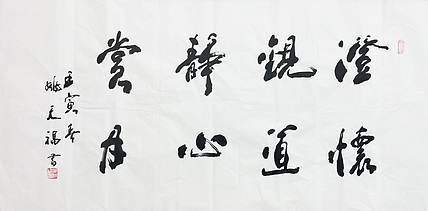 澄懷
觀道
靜心
賞月
壬寅
福書